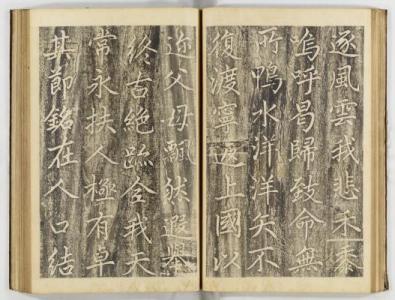 逐風雲我悲禾黍
嗚呼曷歸致命無
所鴨水洋洋矣不
復渡寧上國以
父母飄然遐舉
終古絕跡全我天
常永扶人極有卓
其節銘在人口結